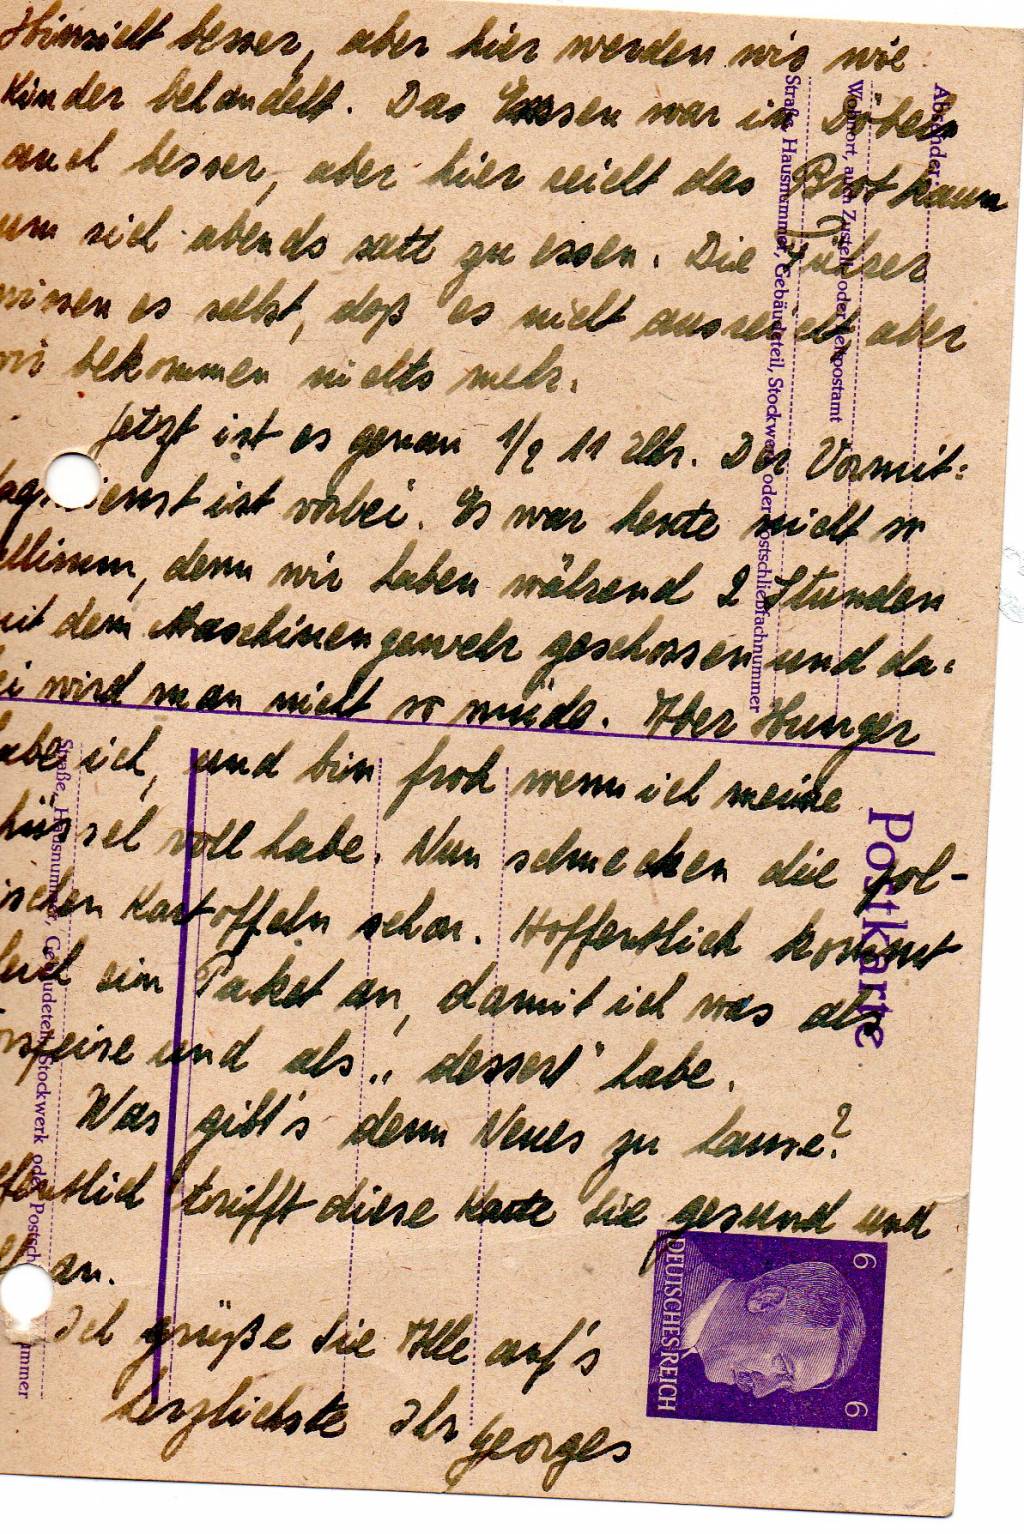 Hinsicht besser, aber hier werden wir wie
Kinder behandelt. Das Essen war in Döbeln
auch besser, aber hier reicht das Brot kaum
um sich abends satt zu essen. Die Führer
wissen es selbst, daß es nicht ausreicht, aber
wir bekommen nichts mehr.
Jetzt ist es genau 1/2 11 Uhr. Der Vormit=
tagsdienst ist vorbei. Es war heute nicht so
schlimm, denn wir haben während 2 Stunden
mit dem Maschinengewehr geschossen und da=
bei wird man nicht so müde. Aber Hunger
habe ich, und bin froh wenn ich meine
Schüssel voll habe. Nun schmecken die pol-
nischen Kartoffeln schon. Hoffentlich kommt
ein Paket an, damit ich was als
Vorspeise und als „dessert" habe.
Was gibt's denn Neues zu Hause?
Hoffentlich trifft diese Karte Sie gesund und
an.
Ich grüße Sie Alle auf's
herzlichste Ihr Georges
Absender:
Wohnort, auch Zustell- oder Leitpostamt
Straße, Hausnummer, Gebäudeteil, Stockwerk oder Postschließfachnummer
Postkarte
Straße, Hausnummer, Gebäudeteil, Stockwerk oder Postschließfachnummer
6
DEUTSCHES REICH
6